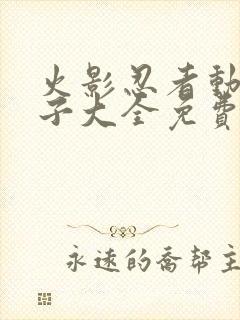 火影忍者動
子大全免費
永遠的喬帮主